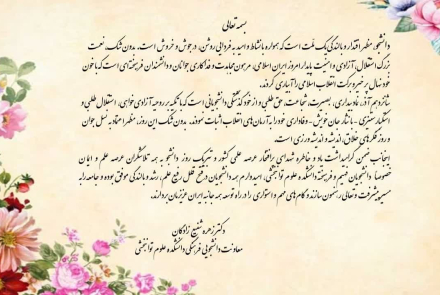 بسمه تعالی
دانشجو، مظهر اقتدار و بالندگی یک ملت است که همواره با نشاط و امید به فردایی روشن، در جوش و خروش است. بدون شک، نعمت
بزرگ استقلال، آزادی و امنیت پایدار امروز ایران اسلامی، مرهون مجاهدت و فداکاری جوانان و دانشمندان فرهیخته‌ای است که با خون
خود نهال پر خیر و برکت انقلاب اسلامی را آبیاری کردند.
شانزدهم آذر، نماد بیداری، بصیرت، شجاعت، حق طلبی و از خود گذشتگی دانشجویانی است که با تکیه بر روحیه آزادی خواهی، استقلال طلبی و
استکبار ستیزی - با نثار جان خویش - وفاداری خود را به آرمان های انقلاب اثبات نمودند. بدون شک این روز، مظهر اعتماد به نسل جوان
و روز فکرهای خلاق، اندیشه و اندیشه ورزی است.
اینجانب ضمن گرامیداشت یاد و خاطره شهدای پرافتخار عرصه علمی کشور و تبریک روز دانشجو به همه تلاشگران عرصه علم و ایمان
خصوصا دانشجویان فهیم و فرهیخته دانشکده علوم توانبخشی، امیدوارم همه دانشجویان در فتح قلل رفیع علم، رشد و بالندگی موفق بوده و جامعه را به
مسیر پیشرفت و تعالی رهنمون سازند و گام های مهم و استواری را در راه توسعه همه جانبه ایران عزیزمان بردارند.
دکتر زهره شفیع زادگان
معاونت دانشجویی فرهنگی دانشکده علوم توانبخشی